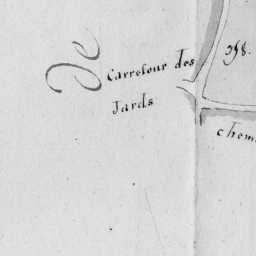 Carrefour des
Jards
chem